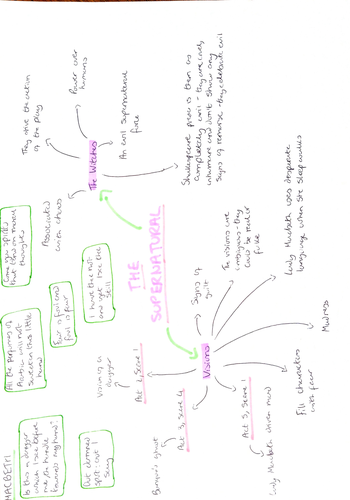 MACBETH:
Is this a dagger
which I see before
me, the handle
towards my hand?
All the perfumes of
Arabia will not
sweeten this little
hand
Come you spirits
that tend on mortal
thoughts
Out damned
spot: out I
say
Fair is foul and
foul is fair
I have thee not
and yet I see thee
still
THE
SUPERNATURAL
The Witches
They drive the action
of the play
Power over
humans
An evil supernatural
force
Associated
with chaos
Shakespeare presents them as
completely evil - they are
inhumane and don't show any
signs of remorse - they celebrate evil
Visions
Vision of a
dagger
Act 2, Scene 1
Banquo's ghost
Act 3, Scene 4
Act 5, Scene 1
Lady Macbeth driven mad
Signs of
guilt
The visions are
ambiguous - they
could be real or
fake
Lady Macbeth uses desperate
language when she sleepwalks
Madness
Fill characters
with fear